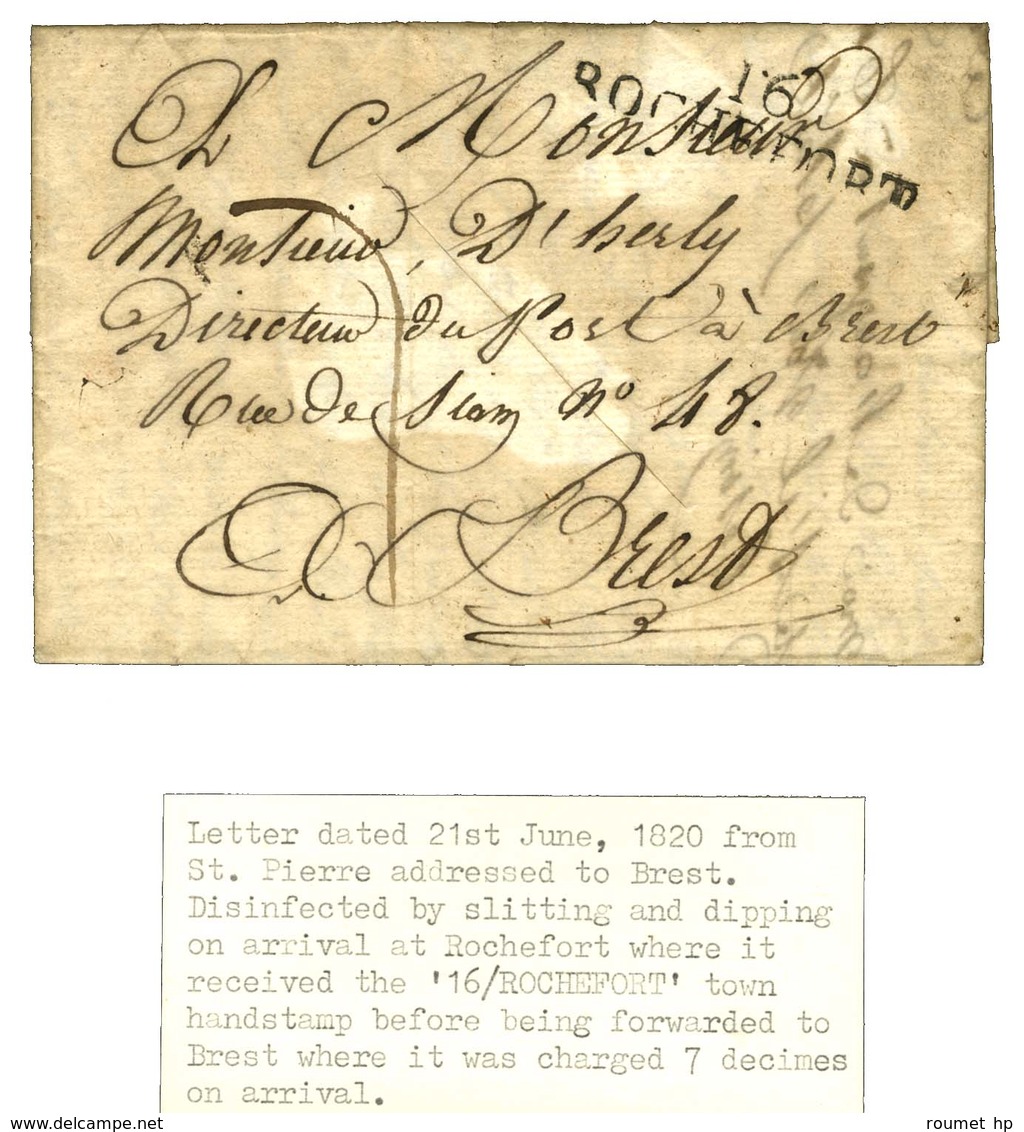 16
ROCHEFORT
A Monsieur
Monsieur, D'herly
Directeur du Port à Brest
Rue de Siam nº 48.
A Brest
7
Letter dated 21st June, 1820 from
St. Pierre addressed to Brest.
Disinfected by slitting and dipping
on arrival at Rochefort where it
received the '16/ROCHEFORT' town
handstamp before being forwarded to
Brest where it was charged 7 decimes
on arrival.
www.delcampe.net
roumet hp